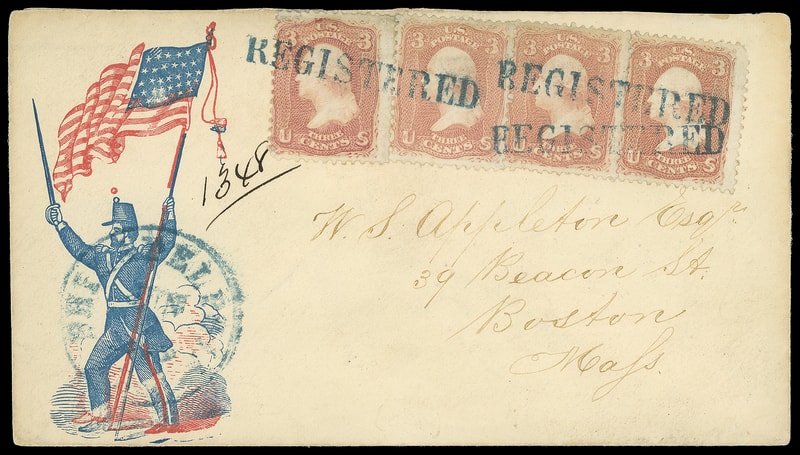 3 U.S. 3
POSTAGE
U THREE S
CENTS
3 U.S. 3
POSTAGE
U THREE S
CENTS
3 U.S. 3
POSTAGE
U THREE S
CENTS
3 U.S. 3
POSTAGE
U THREE S
CENTS
REGISTERED
REGISTERED
REGISTERED
1348
W. S. Appleton Esqr.
39 Beacon St.
Boston
Mass.